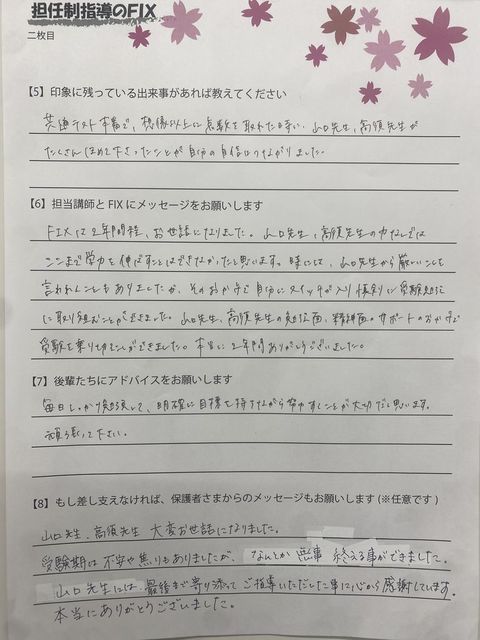 担任制指導のFIX
二枚目
【5】印象に残っている出来事があれば教えてください
共通テスト本番で、想像以上に点数を取れた時に、山口先生、高須先生が
たくさんほめて下さったことが自分の自信につながりました。
【6】担当講師とFIXにメッセージをお願いします
FIXには2年間程、お世話になりました。山口先生、高須先生の力なしでは
ここまで学力を伸ばすことはできなかったと思います。時には、山口先生から厳しいことも
言われることもありましたが、そのおかげで自分にスイッチが入り真剣に受験勉強
に取り組むことができました。山口先生、高須先生の勉強面、精神面のサポートのおかげで
受験を乗り切ることができました。本当に2年間ありがとうございました。
【7】後輩たちにアドバイスをお願いします
毎日しっかり勉強して、明確に目標を持ちながら努力することが大切だと思います。
頑張って下さい。
【8】もし差し支えなければ、保護者さまからのメッセージもお願いします(※任意です)
山口先生、高須先生 大変お世話になりました。
受験期は不安や焦りもありましたが、なんとか無事 終える事ができました。
山口先生には、最後まで寄り添ってご指導いただいた事に心から感謝しています。
本当にありがとうございました。